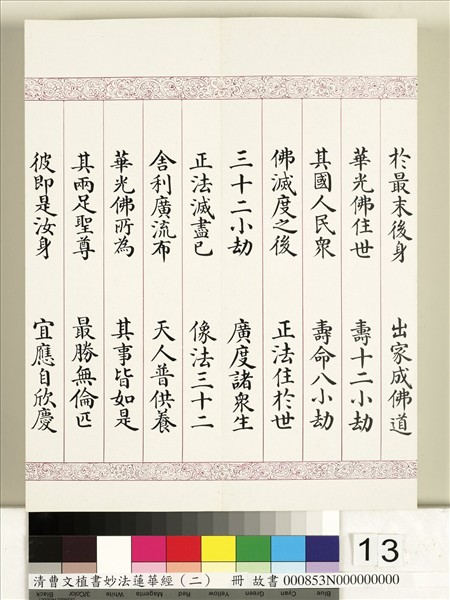 於最末後身 出家成佛道
華光佛住世 壽十二小劫
其國人民衆 壽命八小劫
佛滅度之後 正法住於世
三十二小劫 廣度諸衆生
正法滅盡已 像法三十二
舍利廣流布 天人普供養
華光佛所為 其事皆如是
其兩足聖尊 最勝無倫匹
彼即是汝身 宜應自欣慶
13
清曹文植書妙法蓮華經（二） 冊 故書 000853N000000000
Blue Cyan Green Yellow Red Magenta White 3/Color Black